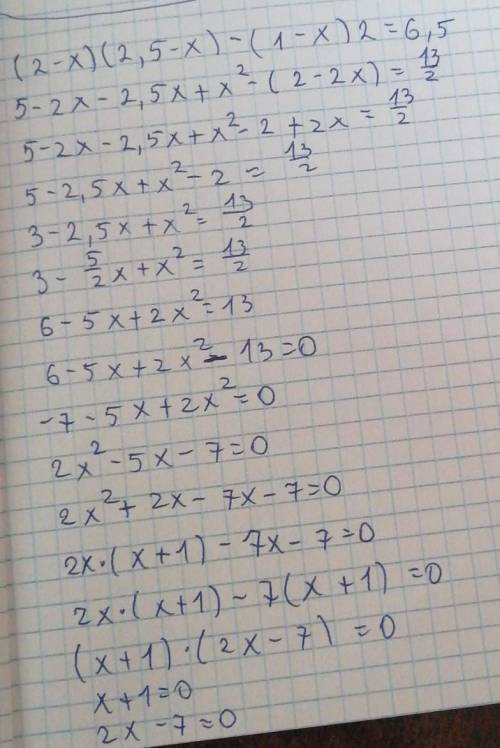 (2-x)(2,5-x)-(1-x)2=6,5
5-2x-2,5x+x²-(2-2x)=13/2
5-2x-2,5x+x²-2+2x=13/2
5-2,5x+x²-2=13/2
3-2,5x+x²=13/2
3-5/2x+x²=13/2
6-5x+2x²=13
6-5x+2x²-13=0
-7-5x+2x²=0
2x²-5x-7=0
2x²+2x-7x-7=0
2x·(x+1)-7x-7=0
2x·(x+1)-7(x+1)=0
(x+1)·(2x-7)=0
x+1=0
2x-7=0